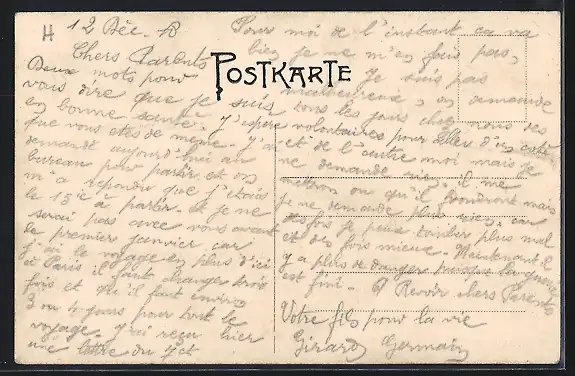 H 12 Déc. 18
Chers Parents
POSTKARTE
Deux mots pour
vous dire que je suis
en bonne santé. J'espère
que vous êtes de même. J'ai
demandé aujourd'hui au
bureau pour partir et on
m'a répondu que j'étais
le 13e à partir. et je ne
serai pas avec vous avant
le premier janvier car
j'ai le voyage en plus d'ici
à Paris il faut changer trois
fois et qu'il faut environ
3 ou 4 jours pour tout le
voyage. j'ai reçu hier
une lettre du
Pour moi de l'instant ça va
bien je ne m'en fous pas,
Je suis pas
malheureux, on demande
tous les jours chez nous des
volontaires pour aller d'un côté
et de l'autre moi mais je
ne demande rien. il me
mettron ou qu'il voudront mais
je ne demande plus rien, car
des fois je peux tomber plus mal
et des fois mieux. Maintenant il
y a plus de danger puisque la guerre
est fini. A Revoir chers Parents
Votre fils pour la vie
Girard Germain